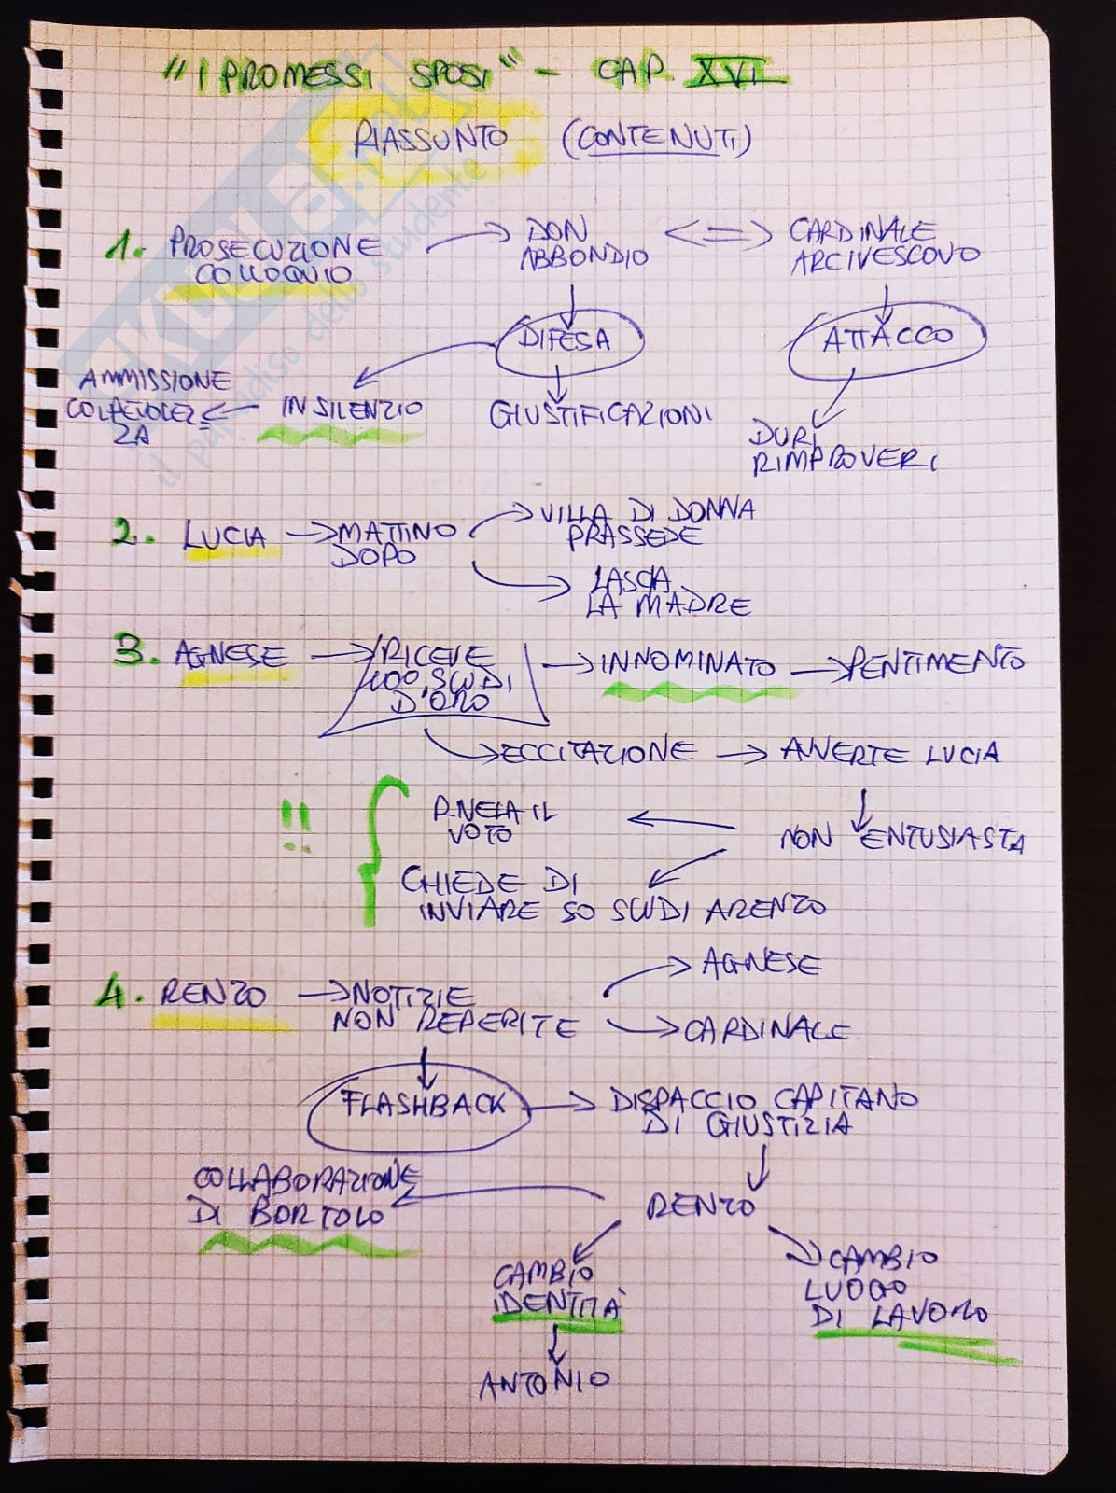 "I PROMESSI SPOSI" - CAP. XVI
RIASSUNTO (CONTENUTI)
1. PROSECUZIONE
COLLOQUIO
DON
ABBONDIO
CARDINALE
ARCIVESCOVO
DIFESA
ATTACCO
AMMISSIONE
COLPEVOLEZ
ZA
IN SILENZIO
GIUSTIFICAZIONI
DURI
RIMPROVERI
2. LUCIA
MATTINO
DOPO
VILLA DI DONNA
PRASSEDE
LASCIA
LA MADRE
3. AGNESE
RICEVE
100 SCUDI
D'ORO
INNOMINATO
PENTIMENTO
ECCITAZIONE
AVVERTE LUCIA
!!
RIVELA IL
VOTO
NON ENTUSIASTA
CHIEDE DI
INVIARE 50 SCUDI A RENZO
4. RENZO
NOTIZIE
NON REPERITE
AGNESE
CARDINALE
FLASHBACK
DISPACCIO CAPITANO
DI GIUSTIZIA
COLLABORAZIONE
DI BORTOLO
RENZO
CAMBIO
IDENTITÀ
CAMBIO
LUOGO
DI LAVORO
ANTONIO
il paradiso dello studente